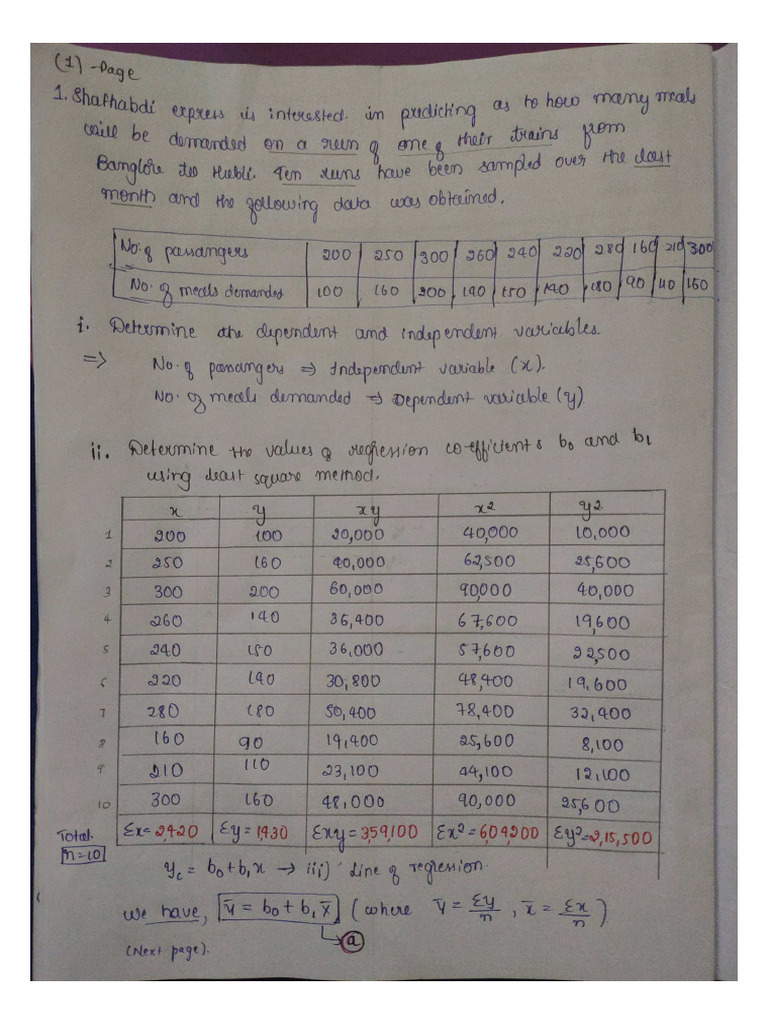 (1) - Page
1. Shathabdi express is interested in predicting as to how many meals
will be demanded on a run of one of their trains from
Banglore to Hubli. Ten runs have been sampled over the last
month and the following data was obtained.
No. of passangers 200 250 300 260 240 220 280 160 210 300
No. of meals demanded 100 160 200 140 150 140 180 90 110 160
i. Determine the dependent and independent variables.
=> No. of passangers => Independent variable (x).
No. of meals demanded => Dependent variable (y)
ii. Determine the values of regression co-efficients b0 and b1
using least square method.
x y xy x2 y2
1 200 100 20,000 40,000 10,000
2 250 160 40,000 62,500 25,600
3 300 200 60,000 90,000 40,000
4 260 140 36,400 67,600 19,600
5 240 150 36,000 57,600 22,500
6 220 140 30,800 48,400 19,600
7 280 180 50,400 78,400 32,400
8 160 90 14,400 25,600 8,100
9 210 110 23,100 44,100 12,100
10 300 160 48,000 90,000 25,600
Total. n=10 Σx=2,420 Σy=1,430 Σxy=3,59,100 Σx2=6,04,200 Σy2=2,15,500
yc = b0 + b1x → iii) Line of regression.
We have, ȳ = b0 + b1x̄ (where ȳ = Σy/n , x̄ = Σx/n)
(Next page). a